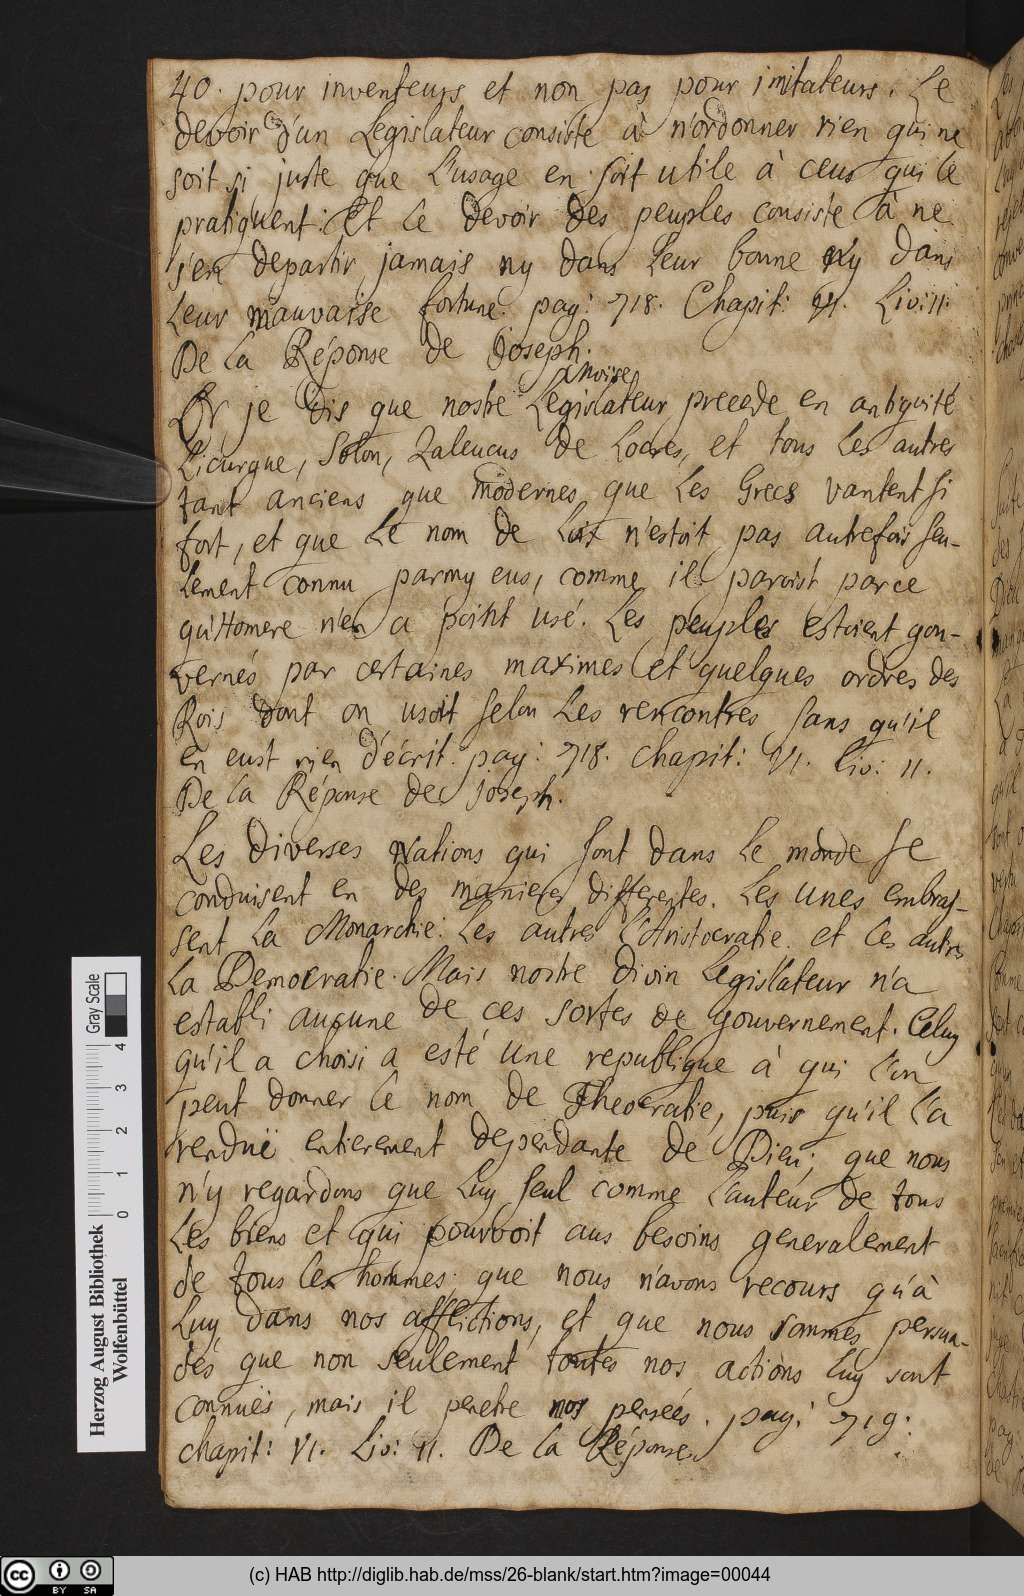 40. pour inventeurs et non pas pour imitateurs. Le
devoir d'un Legislateur consiste à n'ordonner rien qui ne
soit si juste que l'usage en soit utile à ceus qui le
pratiquent: Et le devoir des peuples consiste à ne
s'en departir jamais ny dans leur bonne ny dans
leur mauvaise fortune. pag: 718. Chapit: VI. Liv: II.
De la Réponse de Joseph.
Moïse
Or je dis que nostre Legislateur precede en antiquité
Licurgue, Solon, Zaleucus de Locres, et tous les autres
tant anciens que modernes que les Grecs vantent si
fort, et que le nom de Loix n'estoit pas autrefois seu-
lement connu parmy eus, comme il paroist parce
qu'Homere n'en a point usé. Les peuples estoient gou-
vernés par certaines maximes et quelques ordres des
Rois dont on usoit selon les rencontres sans qu'il
en eust rien d'écrit. pag: 718. chapit: VI. Liv: II.
De la Réponse de Joseph.
Les diverses Nations qui sont dans le monde se
conduisent en des manieres differentes. Les unes embras-
sent la Monarchie: Les autres l'Aristocratie. et les autres
la Democratie. Mais nostre divin Legislateur n'a
establi aucune de ces sortes de gouvernement. Celuy
qu'il a choisi a esté une republique à qui l'on
peut donner le nom de Theocratie, puis qu'il l'a
renduë entierement dependante de Dieu; que nous
n'y regardons que luy seul comme l'auteur de tous
les biens et qui pourvoit aus besoins generalement
de tous les hommes. que nous n'avons recours qu'à
luy dans nos afflictions, et que nous sommes persua-
dés que non seulement toutes nos actions luy sont
connuës, mais il penetre nos pensées. pag: 719.
chapit: VI. Liv: II. De la Réponse.
Herzog August Bibliothek
Wolfenbüttel
0 1 2 3 4
Gray Scale
cc BY SA
(c) HAB http://diglib.hab.de/mss/26-blank/start.htm?image=00044